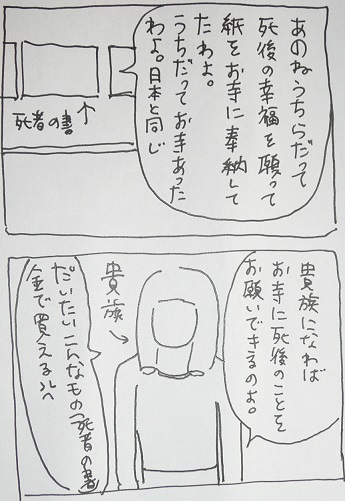 あのねうちらだって
死後の幸福を願って
紙をお寺に奉納して
たわよ。
うちだってお寺あった
わよ。日本と同じ
死者の書
貴族になれば
お寺に死後のことを
お願いできるのよ。
貴族
だいたいこんなもの(死者の書)
金で買える